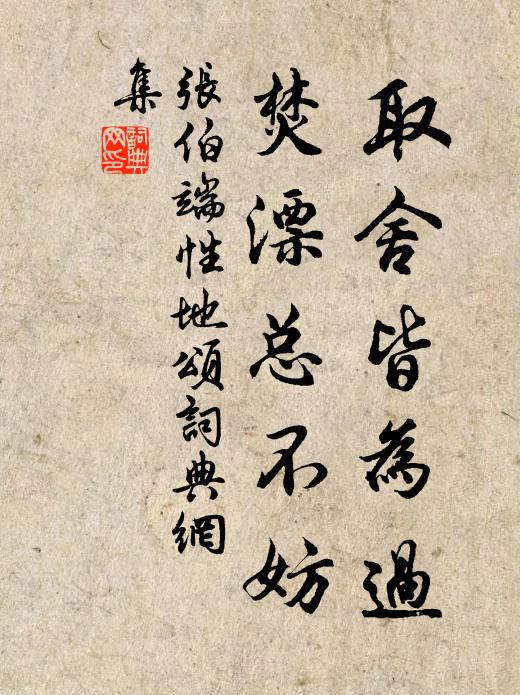 取舍皆為過
焚漂总不妨
張伯端性地頌詞典網
集
詞典
网印